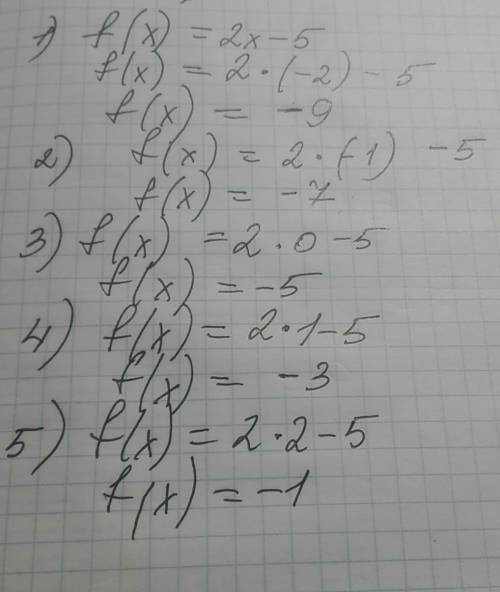 1) f(x) = 2x - 5
f(x) = 2 · (-2) - 5
f(x) = -9
2) f(x) = 2 · (-1) - 5
f(x) = -7
3) f(x) = 2 · 0 - 5
f(x) = -5
4) f(x) = 2 · 1 - 5
f(x) = -3
5) f(x) = 2 · 2 - 5
f(x) = -1